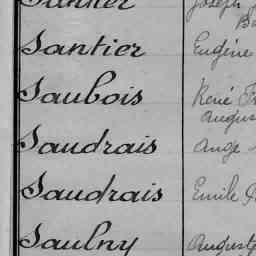 Joseph
Santier Eugène
Saubois René
Saudrais Ange
Saudrais Emile
Saulny